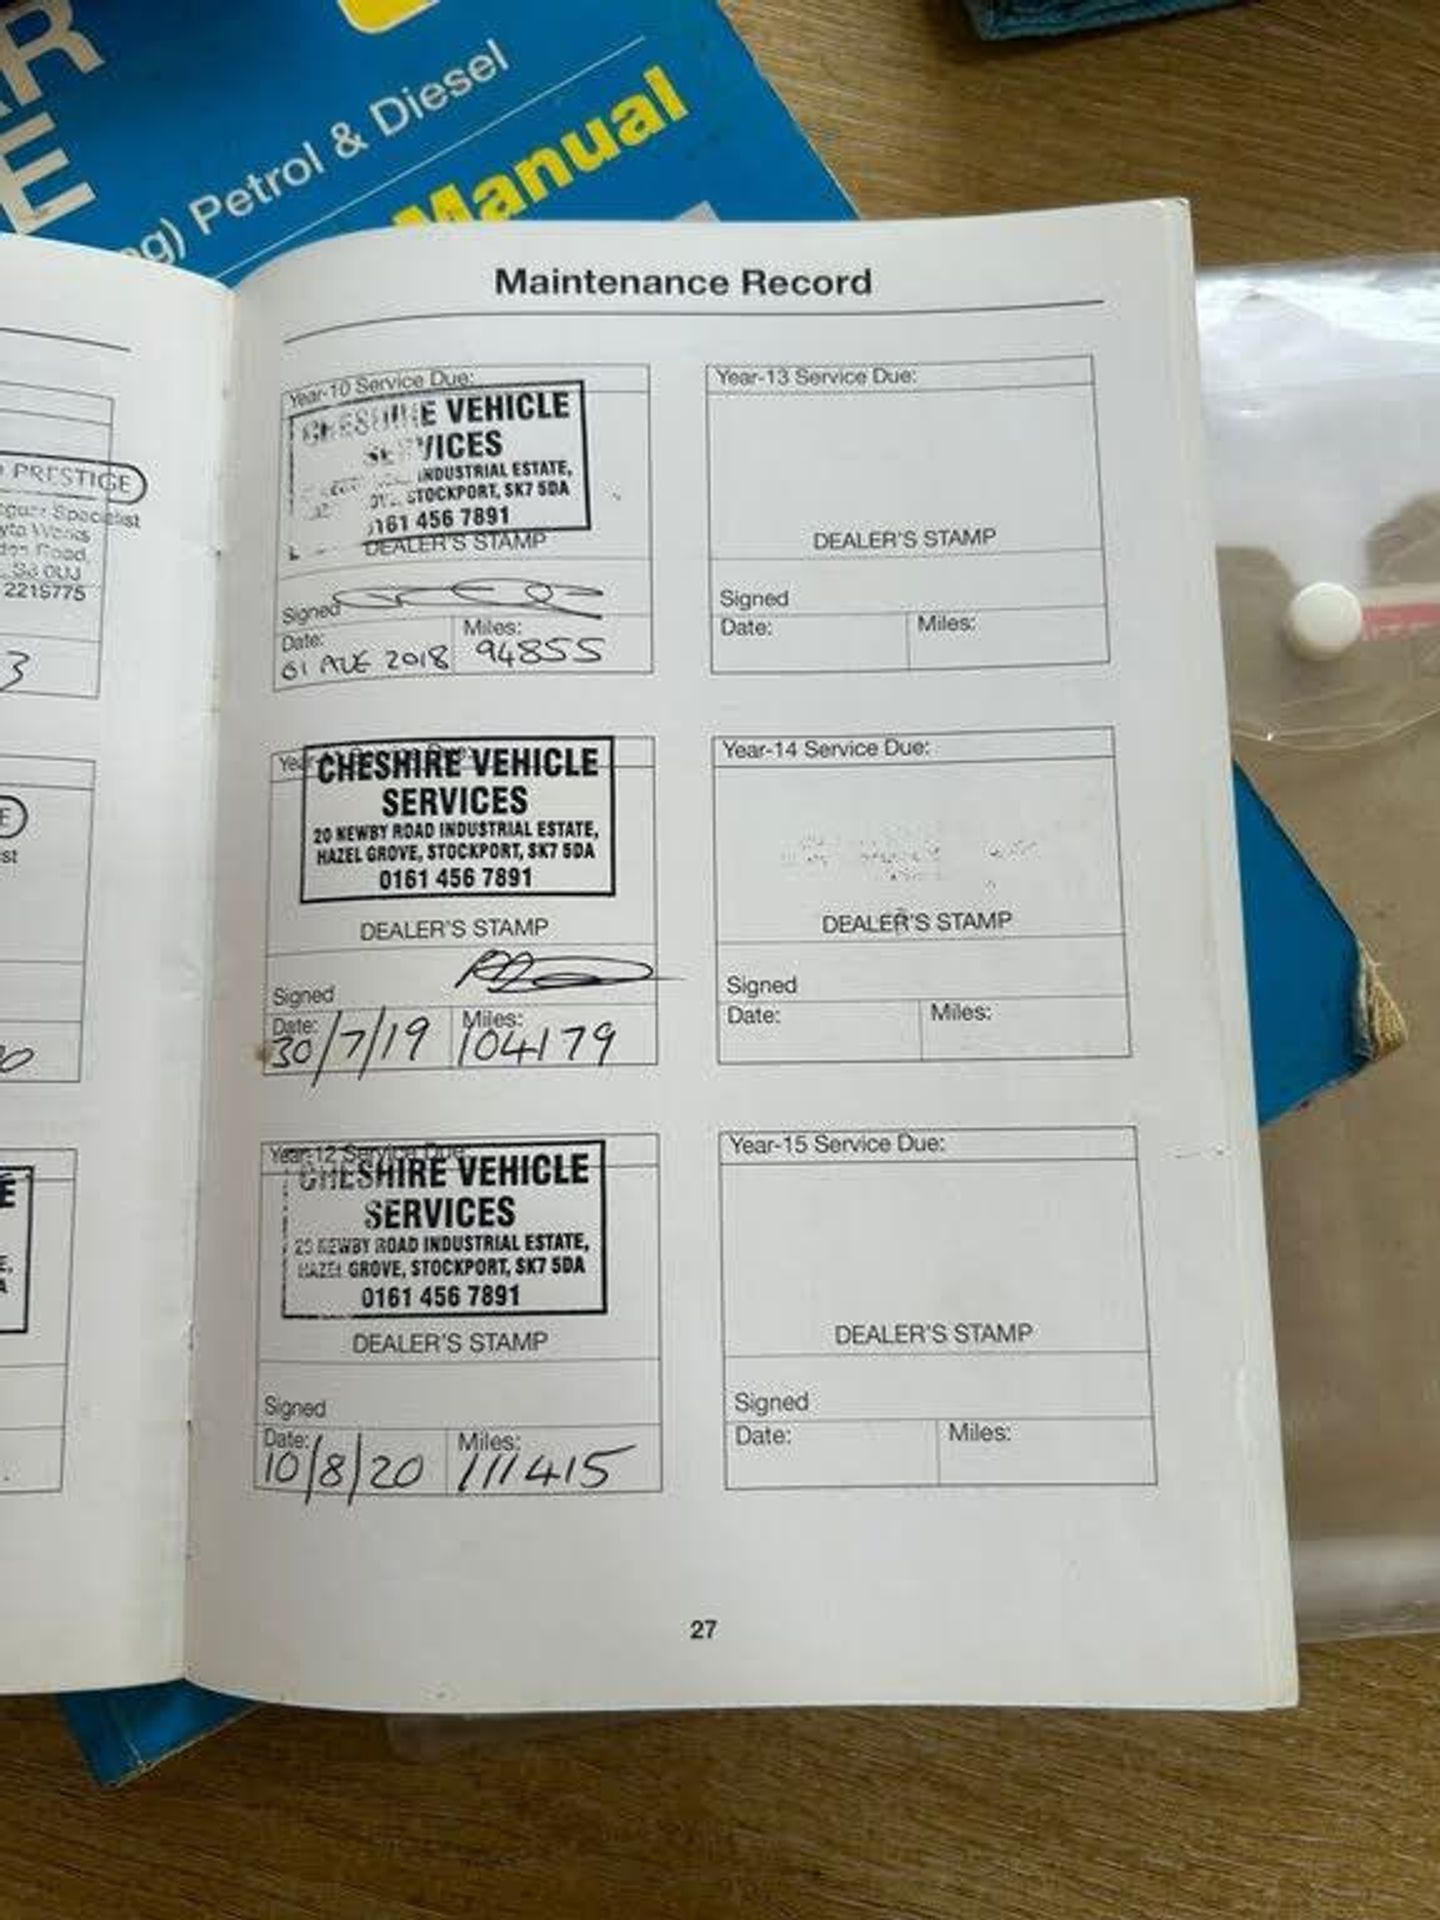 R
E
Petrol & Diesel
Manual
PRESTIGE
2215775
3
E
Maintenance Record
Year-10 Service Due:
CHESHIRE VEHICLE
SERVICES
INDUSTRIAL ESTATE,
STOCKPORT, SK7 5DA
0161 456 7891
DEALER'S STAMP
Signed
Date:
01 AUG 2018
Miles:
94855
CHESHIRE VEHICLE
SERVICES
20 NEWBY ROAD INDUSTRIAL ESTATE,
HAZEL GROVE, STOCKPORT, SK7 5DA
0161 456 7891
DEALER'S STAMP
Signed
Date:
30/7/19
Miles:
104179
Year-12 Service Due:
CHESHIRE VEHICLE
SERVICES
20 NEWBY ROAD INDUSTRIAL ESTATE,
HAZEL GROVE, STOCKPORT, SK7 5DA
0161 456 7891
DEALER'S STAMP
Signed
Date:
10/8/20
Miles:
111415
Year-13 Service Due:
DEALER'S STAMP
Signed
Date:
Miles:
Year-14 Service Due:
DEALER'S STAMP
Signed
Date:
Miles:
Year-15 Service Due:
DEALER'S STAMP
Signed
Date:
Miles:
27